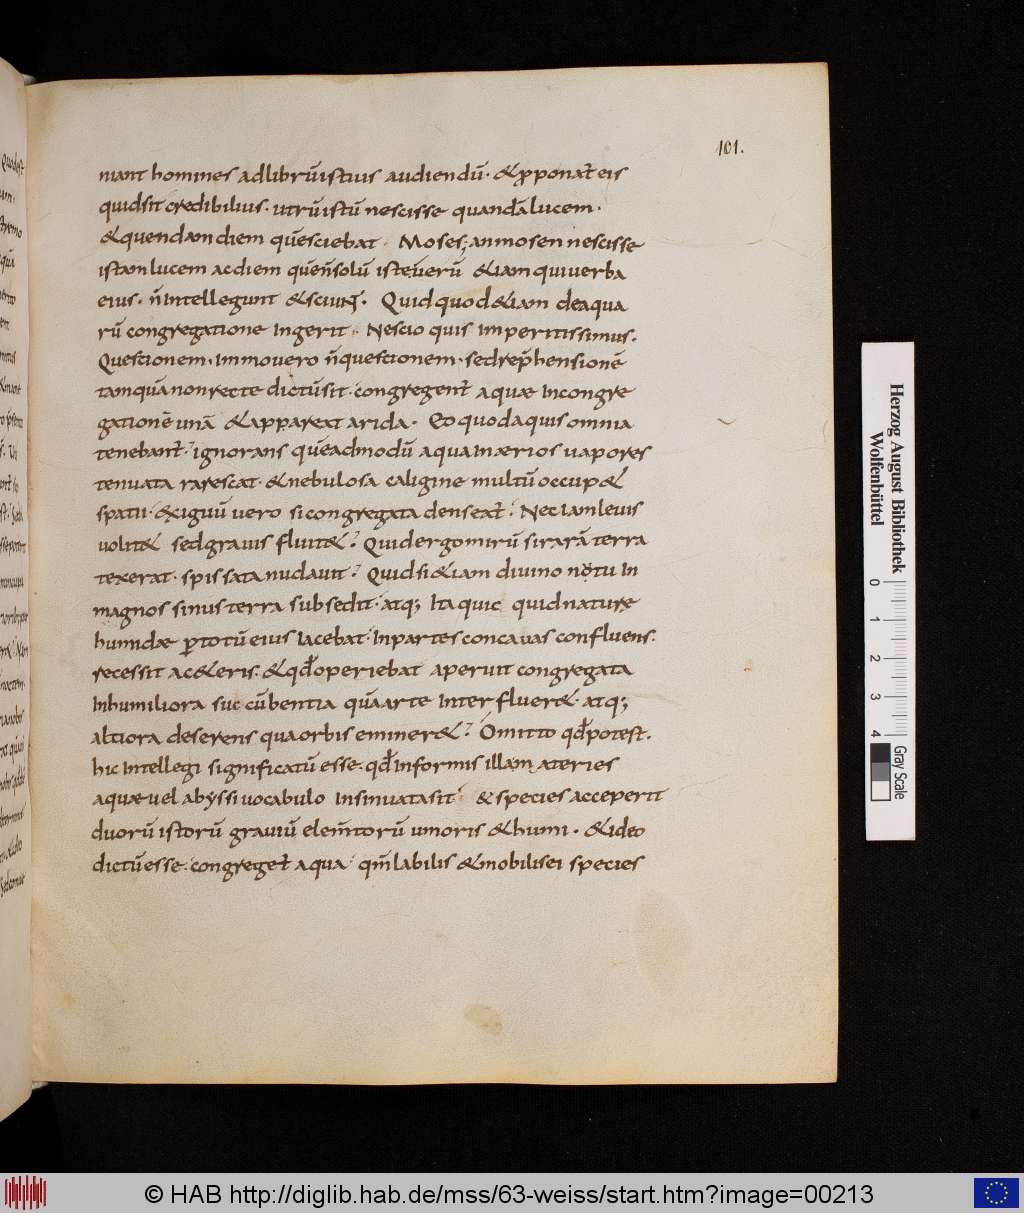 101.
niant homines adlibrūistius audiendū· &ꝓponat̄ eis
quidsit credibilius· utrūistū nescisse quandālucem·
&quendamdiem quēsciebat· Moses; anmosen nescisse
istamlucem acdiem quēn̄solū isteuerū &iam quiuerba
eius· n̄intellegunt &sciunt̄· Quidquod&iam deaqua
rū congregatione Ingerit· Nescio quis Imperitissimus·
Questionem· immouero n̄questionem· sedrep̄hensionē
tamquānonrecte dictūsit· congregent̄ aquæ Incongre
gationē unā &appareat arida· Eo quodaquis omnia
tenebant̄· ignorans quēadmodū aquaInærios uapores
tenuata rarescat· &nebulosa caligine multū occup&
spatii· &xiguū uero sicongregata denseat̄? Neciamleuis
uolit& sedgrauis fluit&? Quidergomirū sirarā terra
texerat· spissata nudauit? Quidsi&iam diuino nótu In
magnos sinus terra subsedit· atq; Ita quic quidnature
humidæ ꝑtotū eius Iacebat· Inpartes concauas confluens·
recessit ac&eris· &qd̄operiebat aperuit congregata
Inhumiliora succūbentia quāarte Interfluer& atq;
altiora deserens quaorbis eminer&? Omitto qd̄potest·
hic intellegi significatū esse· qd̄Informis illam ateries
aquæuel abyssi uocabulo Insinuatasit· & species acceperit
duorū istorū grauiū elem̄torū umoris &humi· &ideo
dictūesse· congreget̄ aqua· qm̄labilis &mobilisei species
Herzog August Bibliothek
Wolfenbüttel
0 1 2 3 4
Gray Scale
© HAB http://diglib.hab.de/mss/63-weiss/start.htm?image=00213